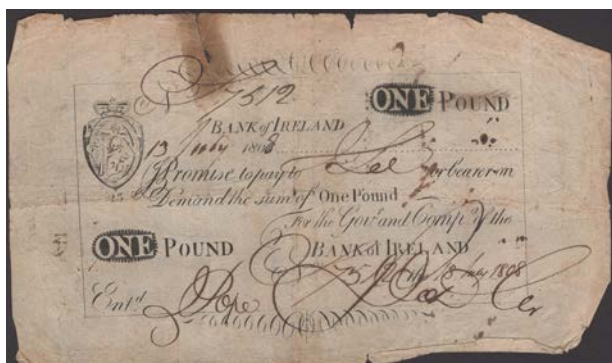 7512
ONE POUND
BANK of IRELAND
13 July 1808
I Promise to pay to J. Lee or bearer on
Demand the sum of One Pound
For the Govr. and Compy. of the
ONE POUND BANK of IRELAND
13 July 1808
Entd.